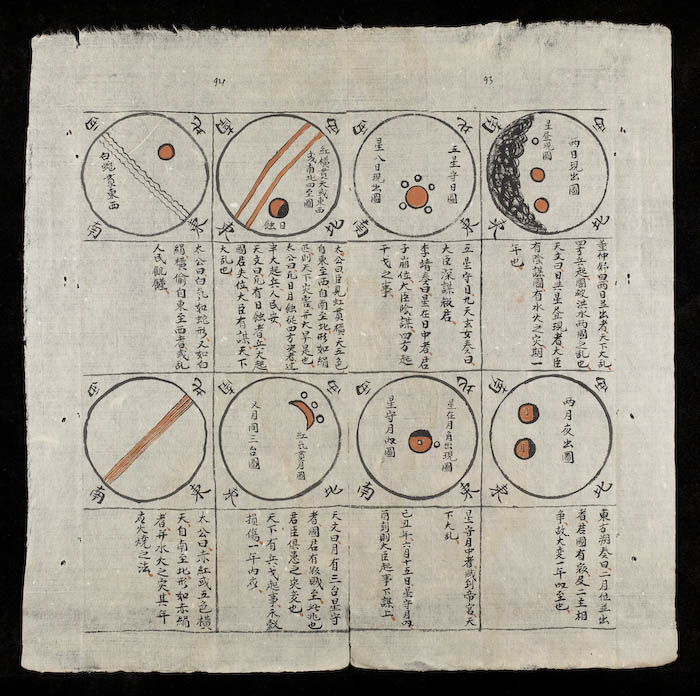 94
93
南
西
兩日現出圖
東
北
董仲舒曰兩日並出者天下大乱
四方兵起國破洪水兩國之乱也
天文曰日與星登現者大臣
有陰謀國有水火之灾期一
年也
北
西
五星守日圖
星入日現出圖
東
南
五星守日九天玄女奏曰
大臣深謀殺君
李靖奏曰星在日中者君
子崩位大臣陰謀四方起
干戈之事
西
南
紅橫貫天或東西
或南北四至圖
日蝕
北
東
太公曰臣見紅貫橫天五色
自東至西自南至北形如絹
疋則天下灾雹并大旱是也
太公曰凡日月蝕從四方來者过
半大起兵人民安
天文曰凡有日蝕者兵火起
國君失位大臣有謀天下
大乱也
北
西
白蛇貫東西
東
南
太公曰白氣如蛇形又如白
絹橫偷自東至西者或乱
人民飢饉
西
南
兩月夜出圖
北
東
東方朔奏曰二月位並出
者若國有殺及二主相
爭故大变一年四至也
北
西
星在月角出現圖
星守月四圖
東
南
星守月中者賊到帝宮天
下大乱
己丑年六月十五日星守月四
酉到則大臣起事下謀上
西
南
紅氣貫月圖
又月同三台圖
北
東
天文曰月有三台星守
者國君有殺賊至此兆也
君臣俱憂之灾变也
天下有兵戈起事禾穀
損傷一年內應
北
西
東
南
太公曰赤紅或五色橫
天自南至北形如赤絹
者并水火之灾其年
應火燒之法